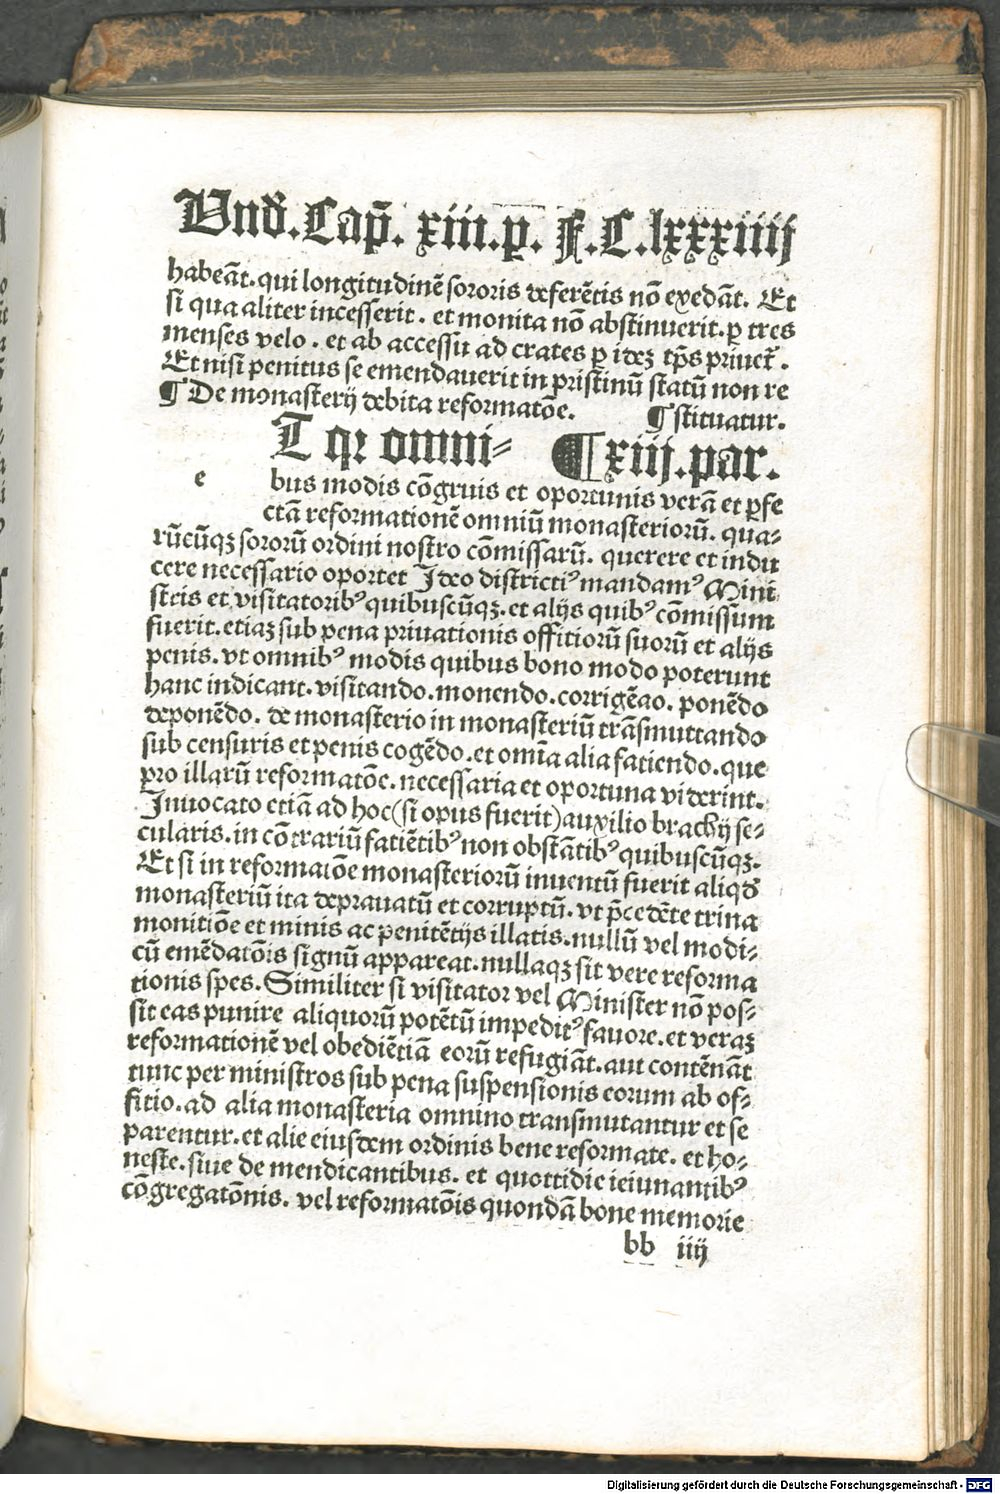 Vnď. Cap̃. xiii. p. F. C. lxxxiiij
habeãt. qui longitudinẽ sororis deferẽtis nõ exedãt. Et
si qua aliter incesserit. et monita nõ abstinuerit. ꝑ tres
menses velo. et ab accessu ad crates ꝑ idẽ tp̃s priuet᷑.
Et nisi penitus se emendauerit in pristinũ statũ non re
¶ De monasterij debita reformatõe. ¶ stituatur.
T qꝛ omni⸗ ¶ xiij. par.
e bus modis cõgruis et oportunis verã et ꝑfe
ctã reformationẽ omniũ monasteriorũ. qua⸗
rũcũqꝫ sororũ ordini nostro cõmissarũ. querere et indu
cere necessario oportet Ideo districti⁹ mandam⁹ Mini
stris et visitatorib⁹ quibuscũqꝫ. et alijs quib⁹ cõmissum
fuerit. etiaꝫ sub pena priuationis offitiorũ suorũ et alijs
penis. vt omnib⁹ modis quibus bono modo poterunt
hanc indicant. visitando. monendo. corrigẽao. ponẽdo
deponẽdo. de monasterio in monasteriũ trãsmuttando
sub censuris et penis cogẽdo. et omĩa alia fatiendo. que
pro illarũ reformatõe. necessaria et oportuna viderint.
Inuocato etiã ad hoc (si opus fuerit) auxilio brachij se⸗
cularis. in cõtrariũ fatiẽtib⁹ non obstãtib⁹ quibuscũqꝫ.
Et si in reformaiõe monasteriorũ inuentũ fuerit aliqď
monasteriũ ita deprauatũ et corruptũ. vt p̃cedẽte trina
monitiõe et minis ac penitẽtijs illatis. nullũ vel modi⸗
cũ emẽdatõis signũ appareat. nullaqꝫ sit vere reforma
tionis spes. Similiter si visitator vel Minister nõ pos⸗
sit eas punire aliquorũ potẽtũ impedit⁹ fauore. et veraꝫ
reformationẽ vel obediẽtiã eorũ refugiãt. aut contẽnãt
tunc per ministros sub pena suspensionis eorum ab of⸗
fitio. ad alia monasteria omnino transmutantur et se
parentur. et alie eiusdem ordinis bene reformate. et ho⸗
neste. siue de mendicantibus. et quottidie ieiunantib⁹
cõgregatõnis. vel reformatõis quondã bone memorie
bb iiij
Digitalisierung gefördert durch die Deutsche Forschungsgemeinschaft - DFG